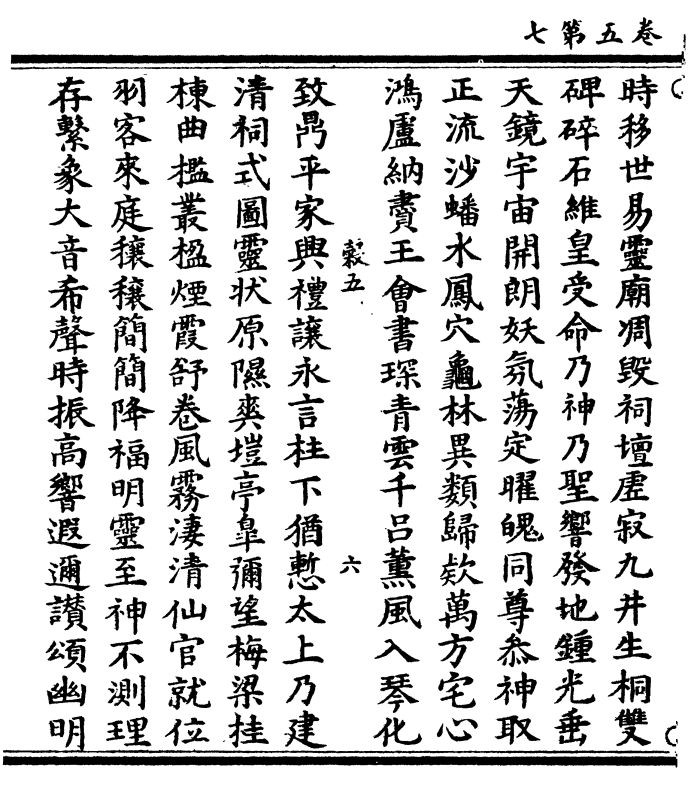 卷五第七
時移世易靈廟凋毀祠壇虛寂九井生桐雙
碑碎石維皇受命乃神乃聖響發地鍾光垂
天鏡宇宙開朗妖氛蕩定曜魄同尊叅神取
正流沙蟠水鳳穴龜林異類歸欵萬方宅心
鴻盧納賮王會書琛青雲千呂薰風入琴化
縠五
六
致鼎平家興禮讓永言柱下猶慙太上乃建
清祠式圖靈狀原隰爽塏亭皐彌望梅梁桂
棟曲檻叢楹煙霞舒卷風霧淒清仙官就位
羽客來庭穰穰簡簡降福明靈至神不測理
存繫象大音希聲時振高響遐邇讃頌幽明